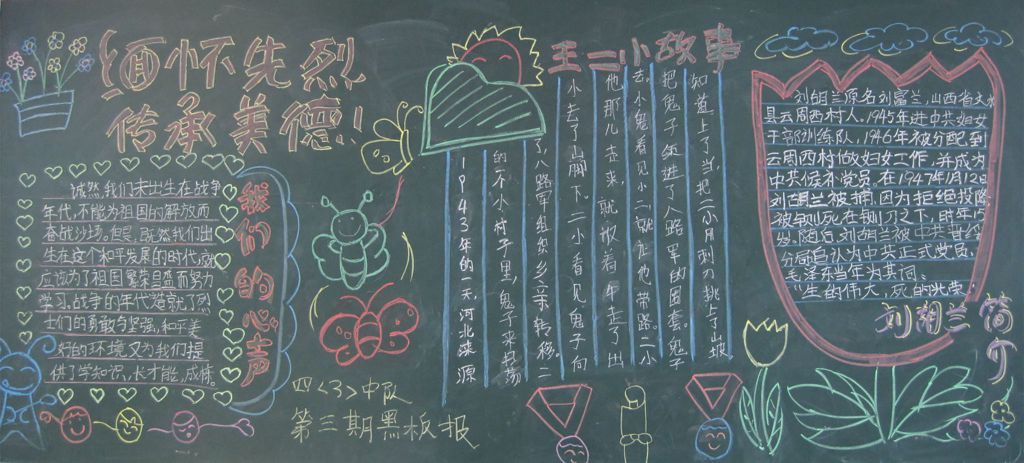 缅怀先烈
传承美德!
诚然,我们未出生在战争
年代,不能为祖国的解放而
奋战沙场。但是,既然我们出
生在这个和平发展的时代,就
应该为了祖国繁荣昌盛而努力
学习。战争的年代造就了烈
士们的勇敢与坚强,和平美
好的环境又为我们提
供了学知识,长才能,成栋
我们的心声
四<3>中队
第三期黑板报
王二小故事
1943年的一天,河北涞源
的一个小村子里,鬼子来扫荡
了,八路军组织乡亲转移。二
小去了山脚下。二小看见鬼子向
他那儿走来,就放着牛走了出
去。小鬼看见小二就让他带路。二小
把鬼子领进了八路军的圈套。鬼子
知道上了当,把二小用刺刀挑上了山坡
刘胡兰原名刘富兰,山西省文水
县云周西村人。1945年进中共妇女
干部训练队,1946年被分配到
云周西村做妇女工作,并成为
中共候补党员。在1947年1月12日
刘胡兰被捕,因为拒绝投降,
被铡死在铡刀之下,时年15
岁。随后,刘胡兰被中共晋绥
分局追认为中共正式党员。
毛泽东当年为其词:
“生的伟大,死的光荣”
刘胡兰简介